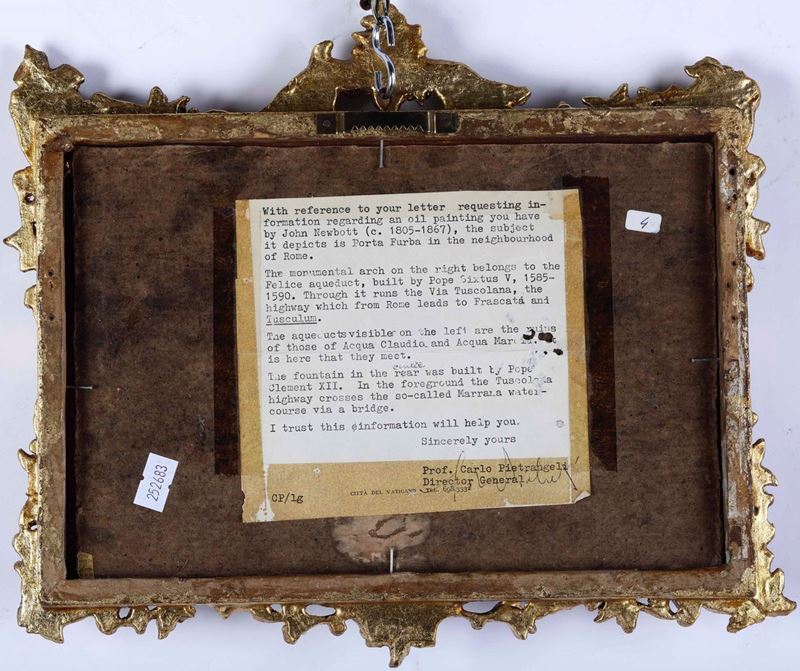 With reference to your letter requesting in-
formation regarding an oil painting you have
by John Newbott (c. 1805-1867), the subject
it depicts is Porta Furba in the neighbourhood
of Rome.
The monumental arch on the right belongs to the
Felice aqueduct, built by Pope Sixtus V, 1585-
1590. Through it runs the Via Tuscolana, the
highway which from Rome leads to Frascati and
Tusculum.
The aqueducts visible on the left are the ruins
of those of Acqua Claudio and Acqua
is here that they meet.
The fountain in the rear was built by Pope
Clement XII. In the foreground the Tuscolana
highway crosses the so-called Marrana water-
course via a bridge.
I trust this information will help you.
Sincerely yours
Prof. Carlo Pietrangeli
Director General
CP/lg
CITTÀ DEL VATICANO - TEL.
4
252683